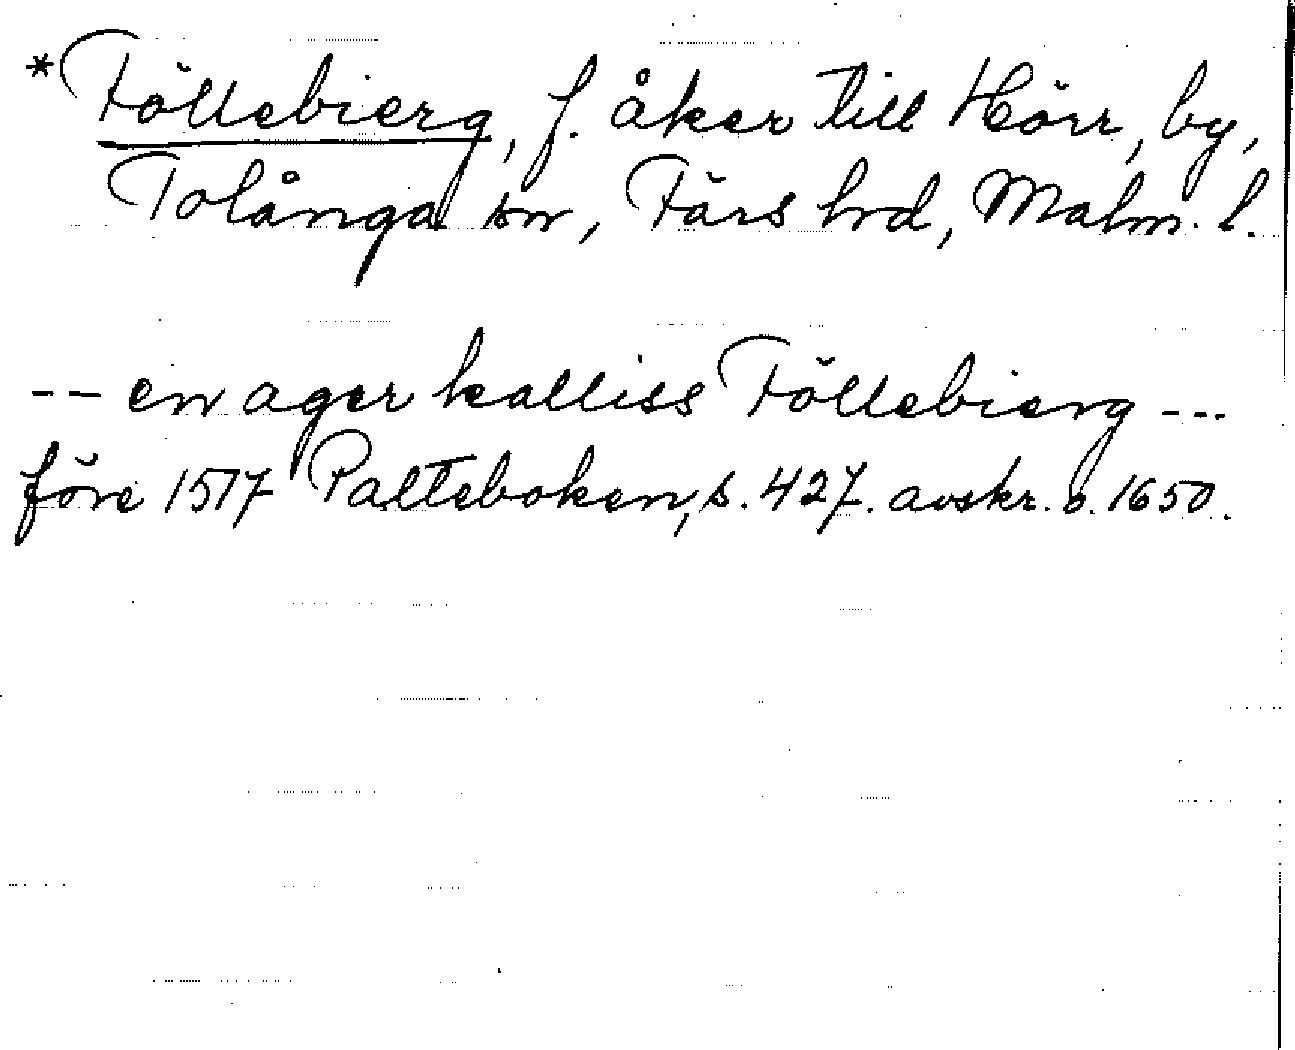 *Föllebierg, f. åker till Hörr, by,
Tolånga sn, Färs hrd, Malm. l.
-- en ager kalliss Föllebierg ---
före 1517 Palteboken, s. 427. avskr. o. 1650.